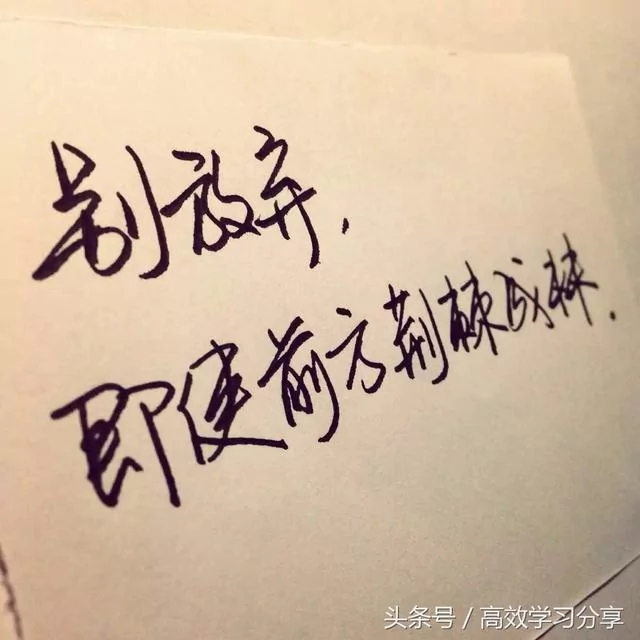 别放弃.
即使前方荆棘成林.
头条号／高效学习分享